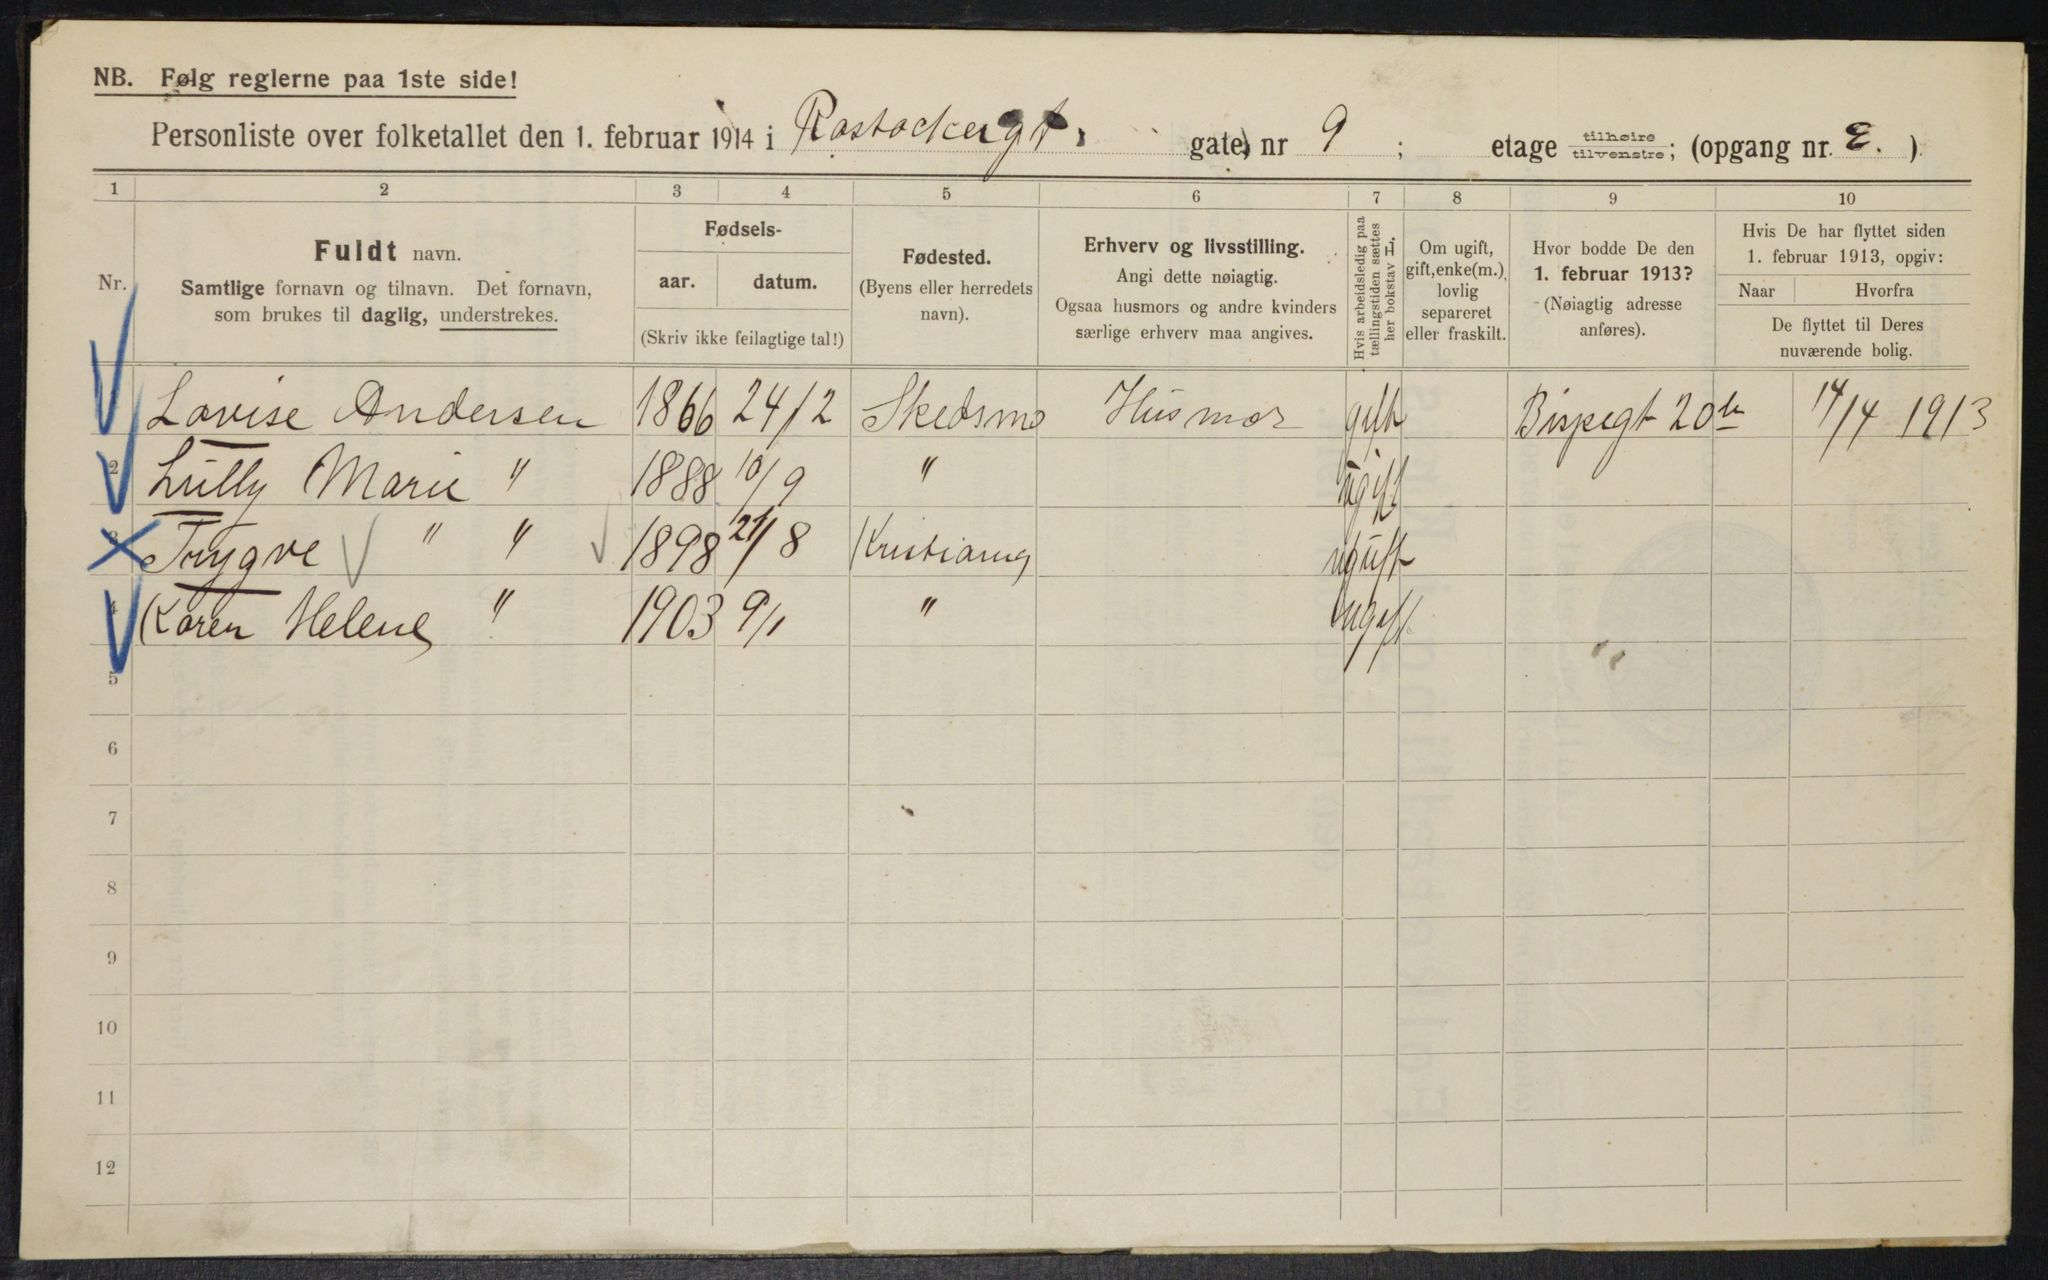 NB. Følg reglerne paa 1ste side!
Personliste over folketallet den 1. februar 1914 i Rastockergt. gate, nr 9 ; etage tilhøire tilvenstre; (opgang nr. E. )
1 2 3 4 5 6 7 8 9 10
Nr.
Fuldt navn.
Samtlige fornavn og tilnavn. Det fornavn,
som brukes til daglig, understrekes.
Fødsels-
aar. datum.
(Skriv ikke feilagtige tal!)
Fødested.
(Byens eller herredets
navn).
Erhverv og livsstilling.
Angi dette nøiagtig.
Ogsaa husmors og andre kvinders
særlige erhverv maa angives.
Hvis arbeidsledig paa
tællingstiden sættes
her bokstav H.
Om ugift,
gift, enke(m.),
lovlig
separeret
eller fraskilt.
Hvor bodde De den
1. februar 1913?
(Nøiagtig adresse
anføres).
Hvis De har flyttet siden
1. februar 1913, opgiv:
Naar Hvorfra
De flyttet til Deres
nuværende bolig.
Lovise Andersen 1866 24/2 Skedsmo Husmor gift Bispegt 20 14/4 1913
2 Lully Marie " 1888 10/9 " ugift
3 Trygve " " 1898 21/8 Kristiania ugift
4 Karen Helene " 1903 9/1 " ugift
5
6
7
8
9
10
11
12